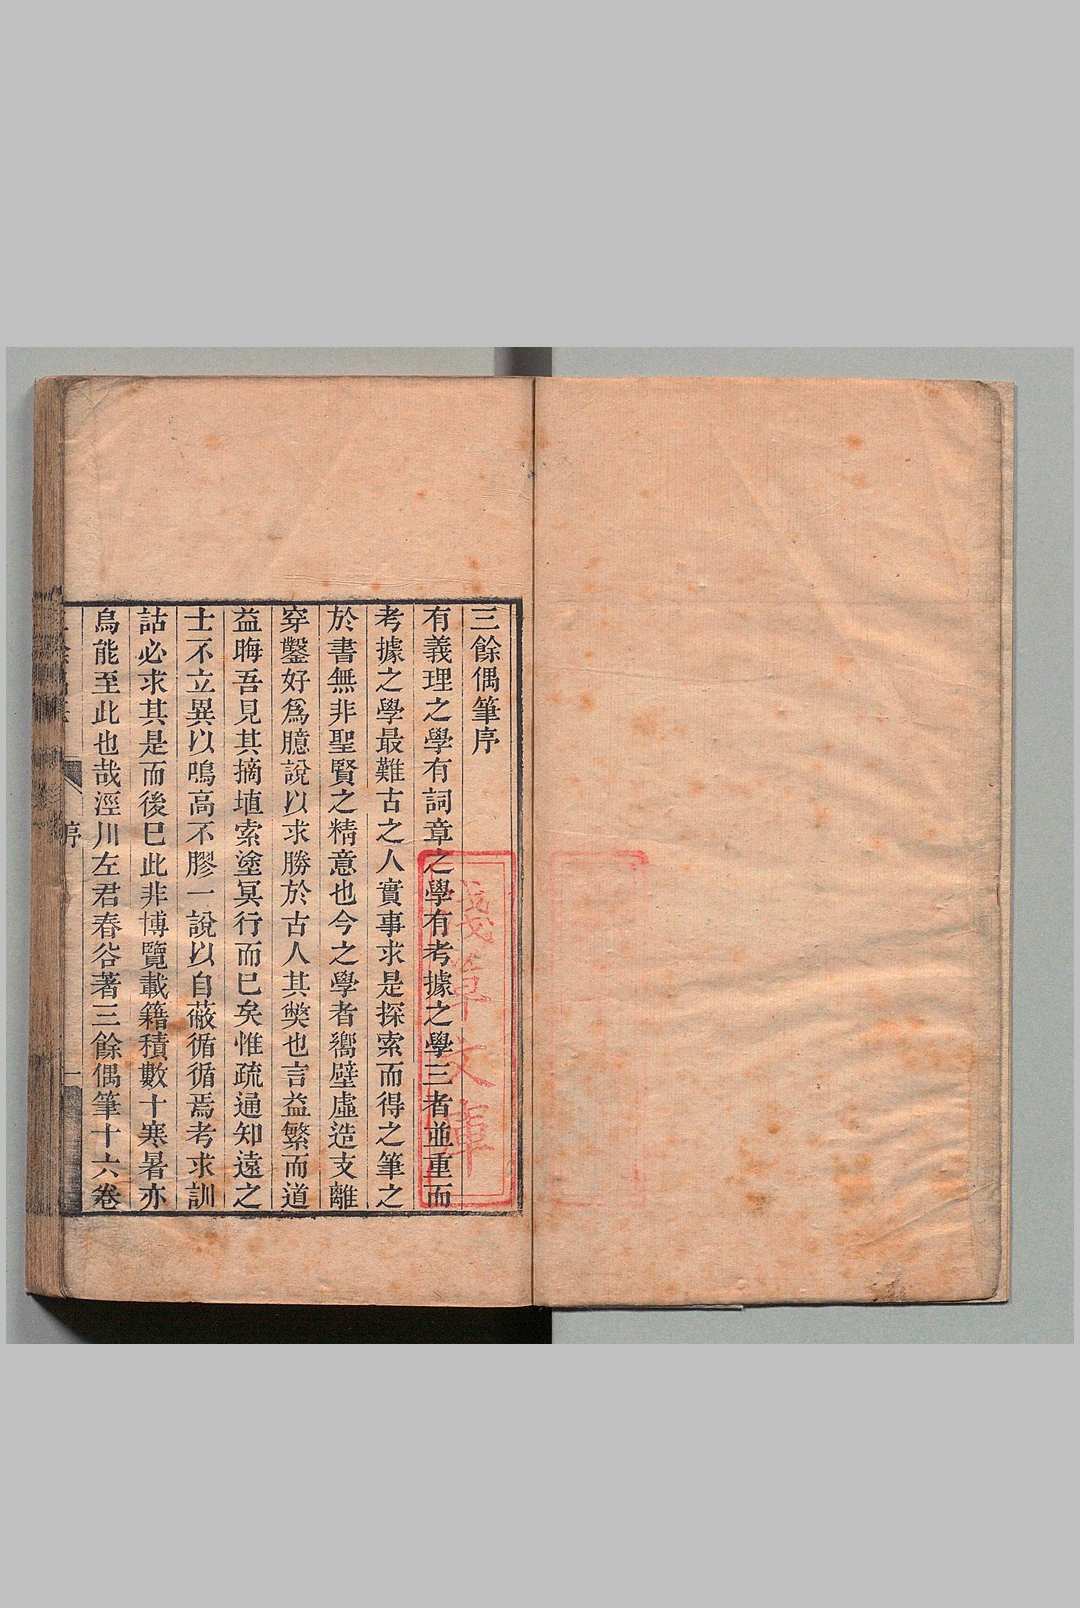 三餘偶筆序
有義理之學有詞章之學有考據之學三者並重而
考據之學最難古之人實事求是探索而得之筆之
於書無非聖賢之精意也今之學者嚮壁虛造支離
穿鑿好爲臆說以求勝於古人其獘也言益繁而道
益晦吾見其摘埴索塗冥行而巳矣惟疏通知遠之
士不立異以鳴高不膠一說以自蔽循循焉考求訓
詁必求其是而後巳此非博覽載籍積數十寒暑亦
烏能至此也哉涇川左君春谷著三餘偶筆十六卷
序
一
文庫